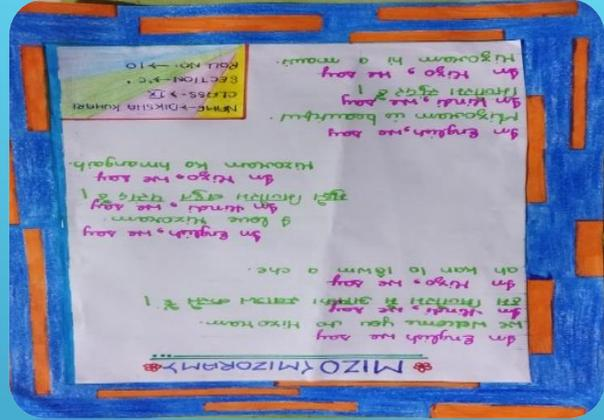 MIZO (MIZORAM)
In English, we say
We welcome you to Mizoram.
In Hindi, we say
हम मिजोरम में आपका स्वागत करते हैं।
In Mizo, we say
ah kan lo lâwm a che.
In English, we say
I love Mizoram.
In Hindi, we say
मुझे मिजोरम बहुत पसंद है।
In Mizo, we say
Mizoram ka hmangaih.
In English, we say
Mizoram is beautiful.
In Hindi, we say
मिजोरम सुंदर है।
In Mizo, we say
Mizoram hi a mawi.
NAME→DIKSHA KUMARI
CLASS→IX
SECTION→'C'
ROLL NO:→10